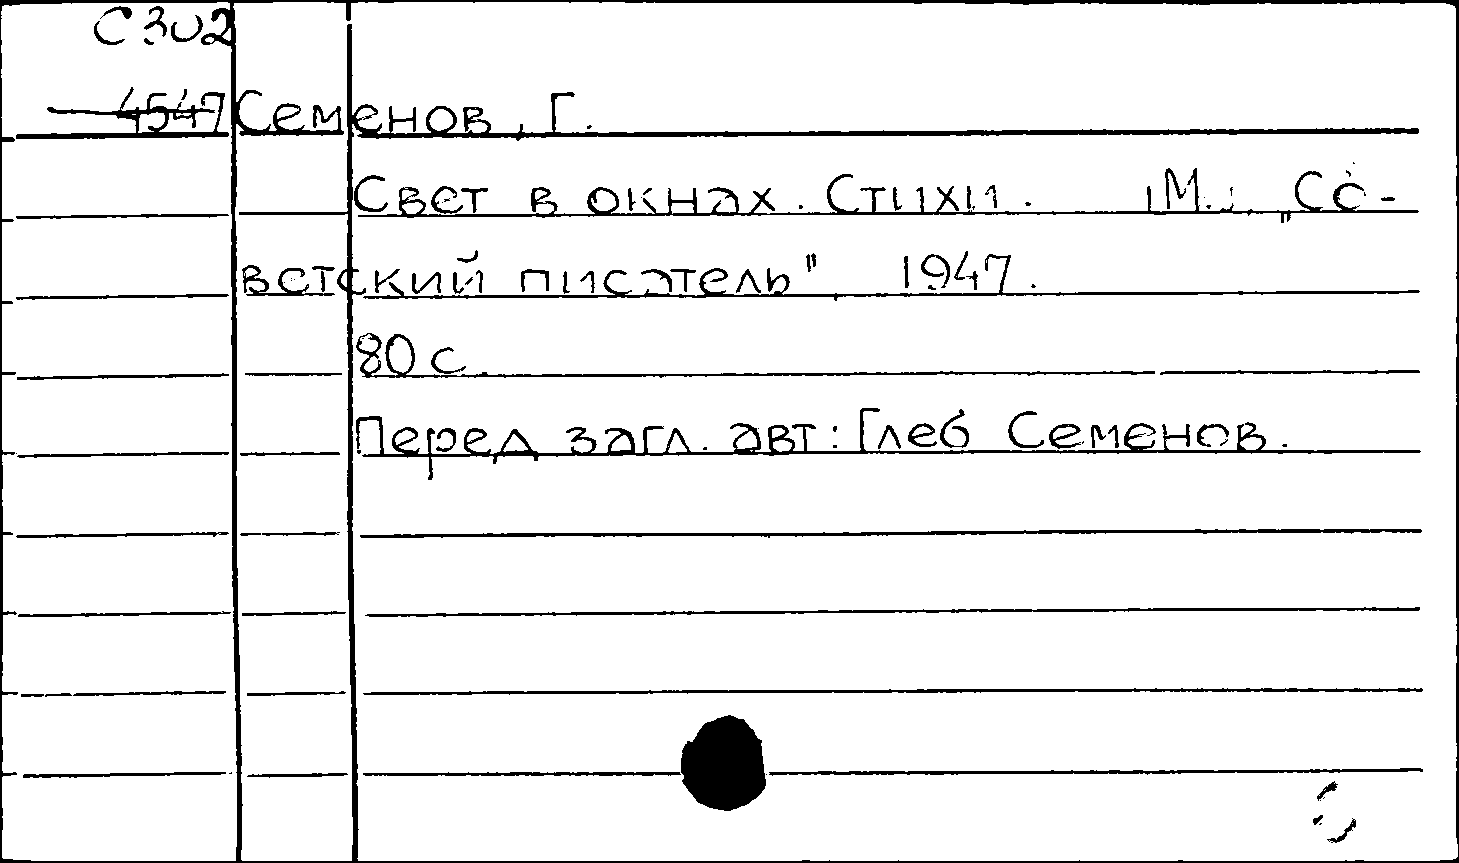 С302
4547 Семенов, Г.
Свет в окнах. Стихи. М., „Со-
ветский писатель", 1947.
80 с.
Перед загл. авт: Глеб Семенов.